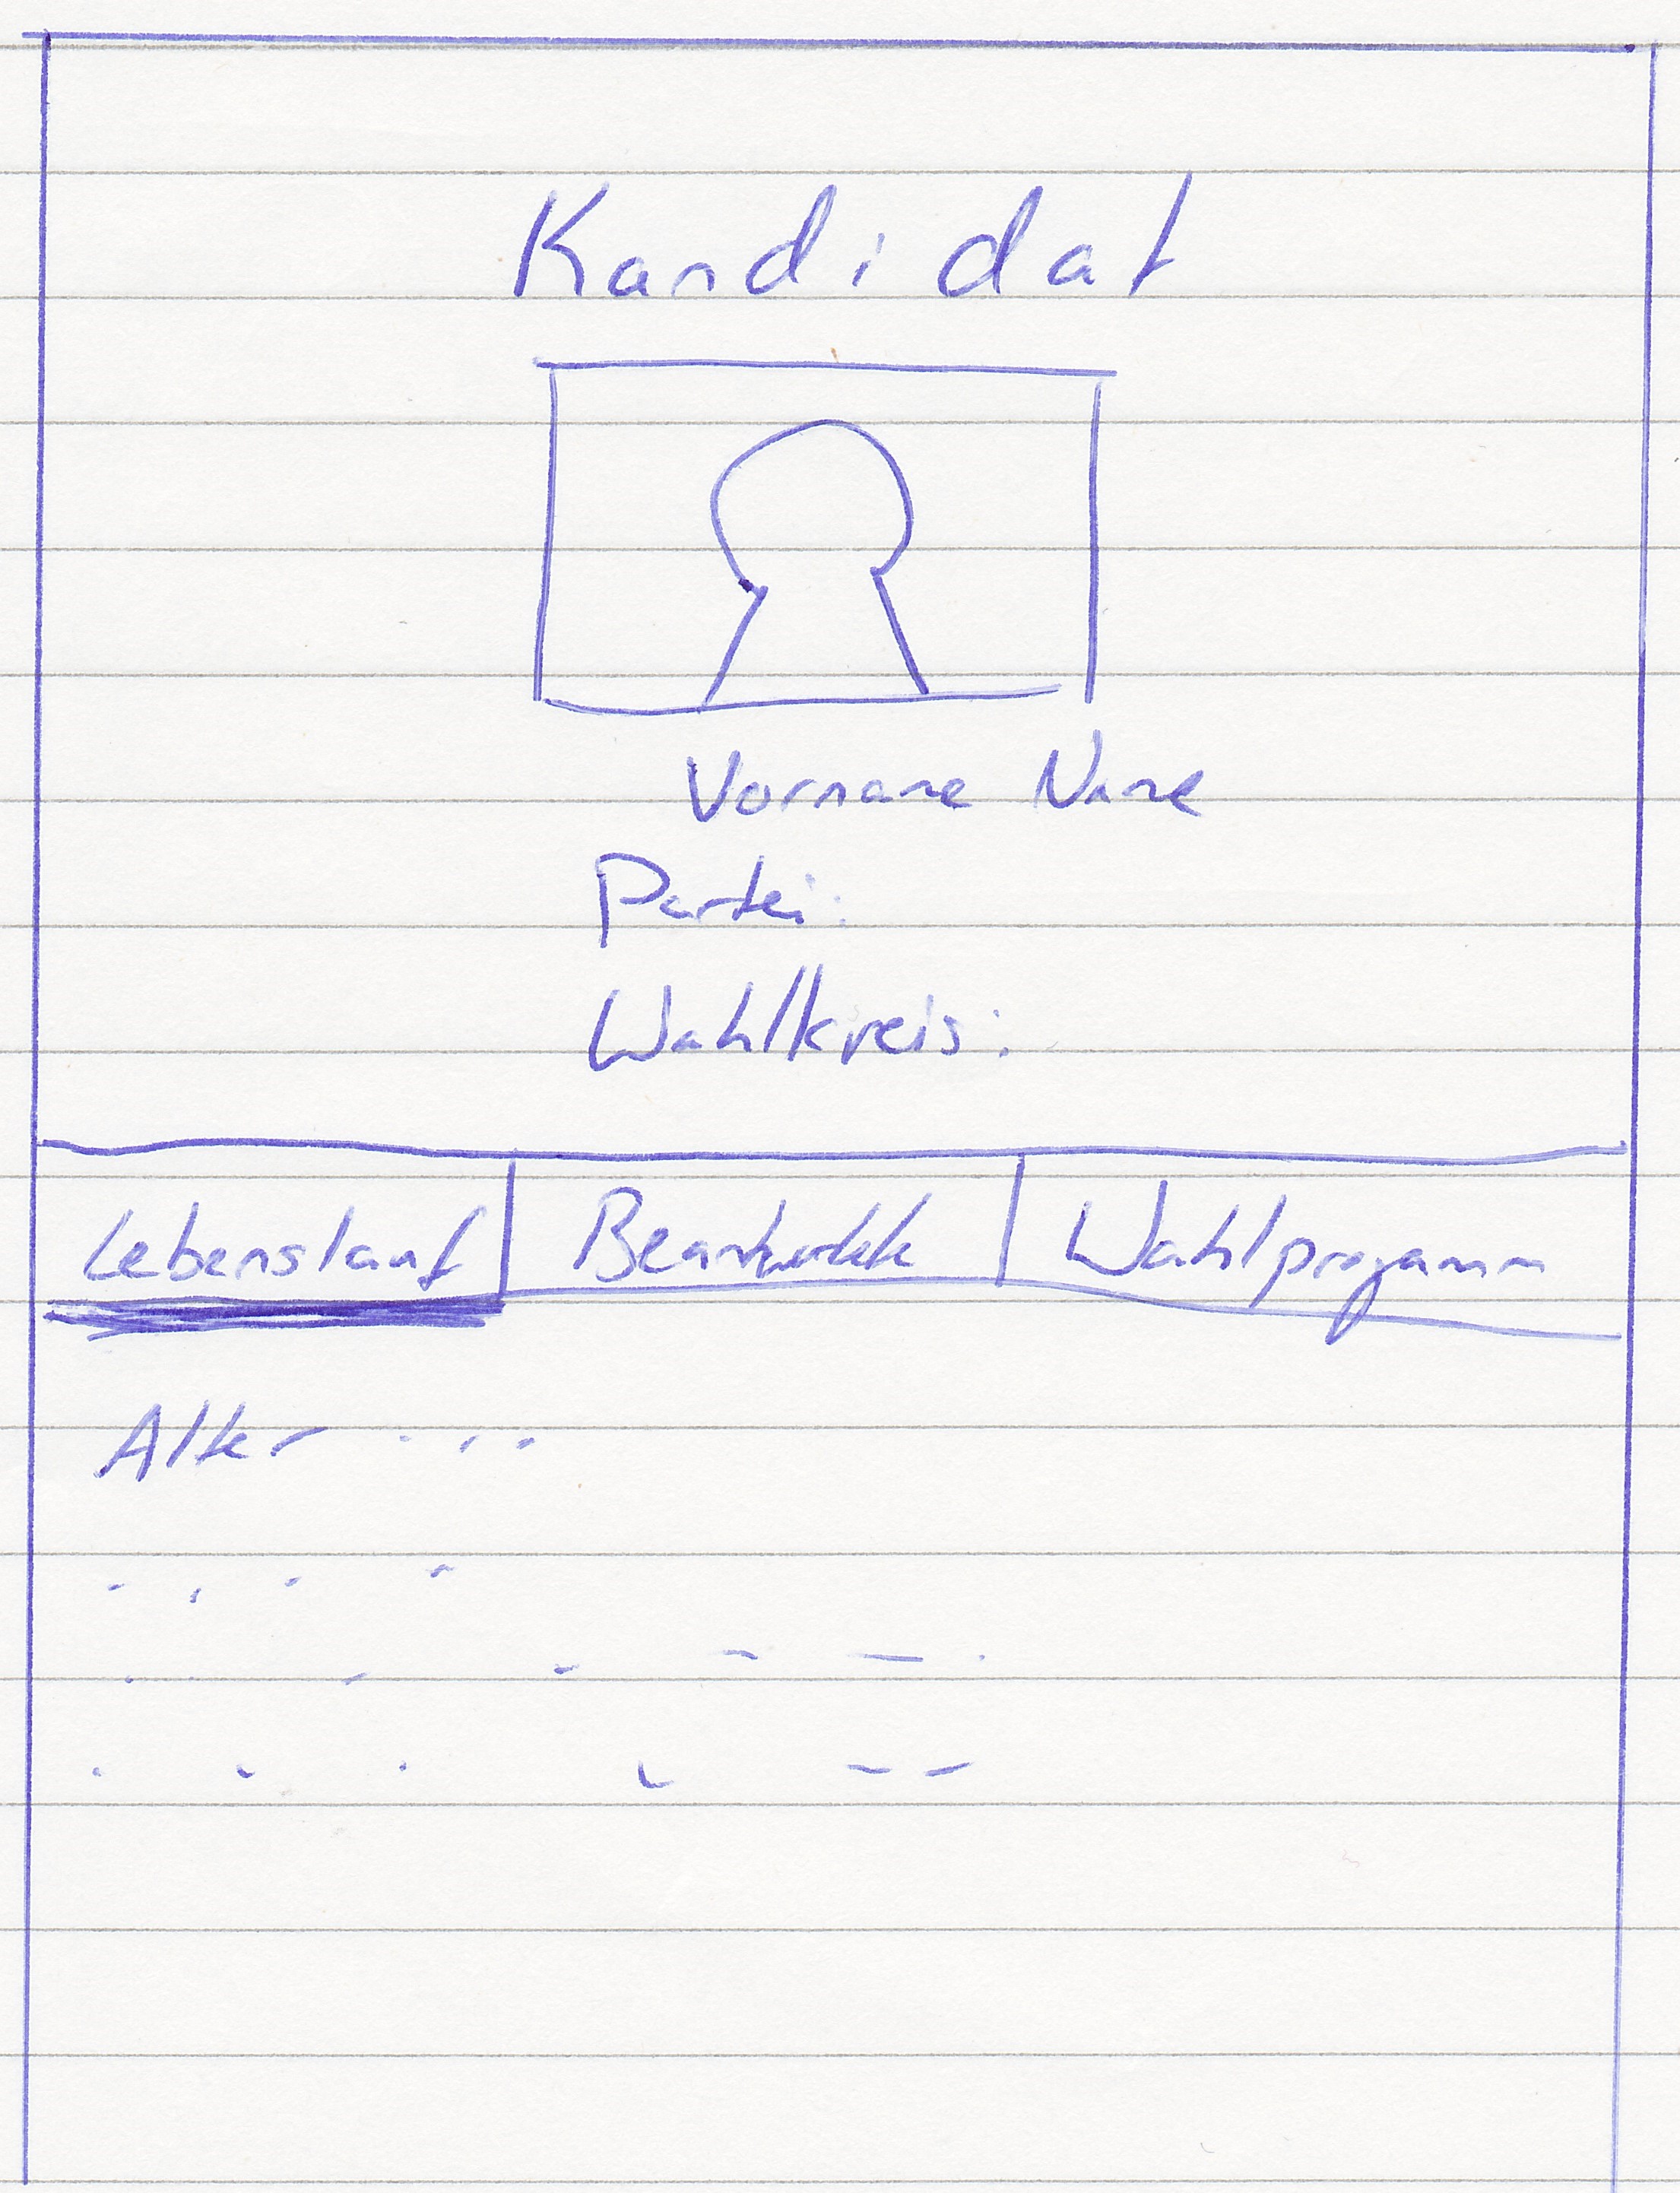 Kandidat
Vorname Name
Partei:
Wahlkreis:
Lebenslauf Wahlprogamm
Alter ...